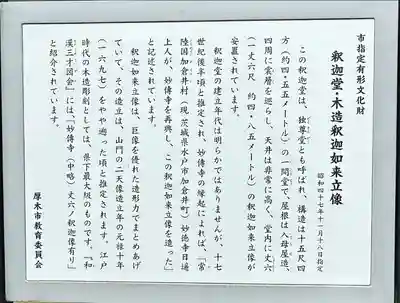 市指定有形文化財
釈迦堂・木造釈迦如来立像
昭和四十七年十一月十八日指定
この釈迦堂は、独尊堂とも呼ばれ、構造は十五尺四
方(約四・五五メートル)の一間堂で、屋根は入母屋造、
四周に雲層を巡らし、天井は非常に高く、堂内に丈六
(一丈六尺 約四・八五メートル)の釈迦如来立像が
安置されています。
釈迦堂の建立年代は明らかではありませんが、十七
世紀後半頃と推定され、妙傳寺の縁起によれば、「常
陸国加倉井村(現 茨城県水戸市加倉井町)妙徳寺日通
上人が、妙傳寺を再興し、この釈迦如来立像を造った」
と記述されています。
釈迦如来立像は、巨像を優れた造形力でまとめあげ
ていて、その造立は、山門の二天像造立年の元禄十年
(一六九七)をやや遡った頃と推定されます。江戸
時代の木造彫刻としては、県下最大級のものです。『和
漢三才図会』には、「妙傳寺(中略)丈六ノ釈迦像有リ」
と紹介されています。
厚木市教育委員会